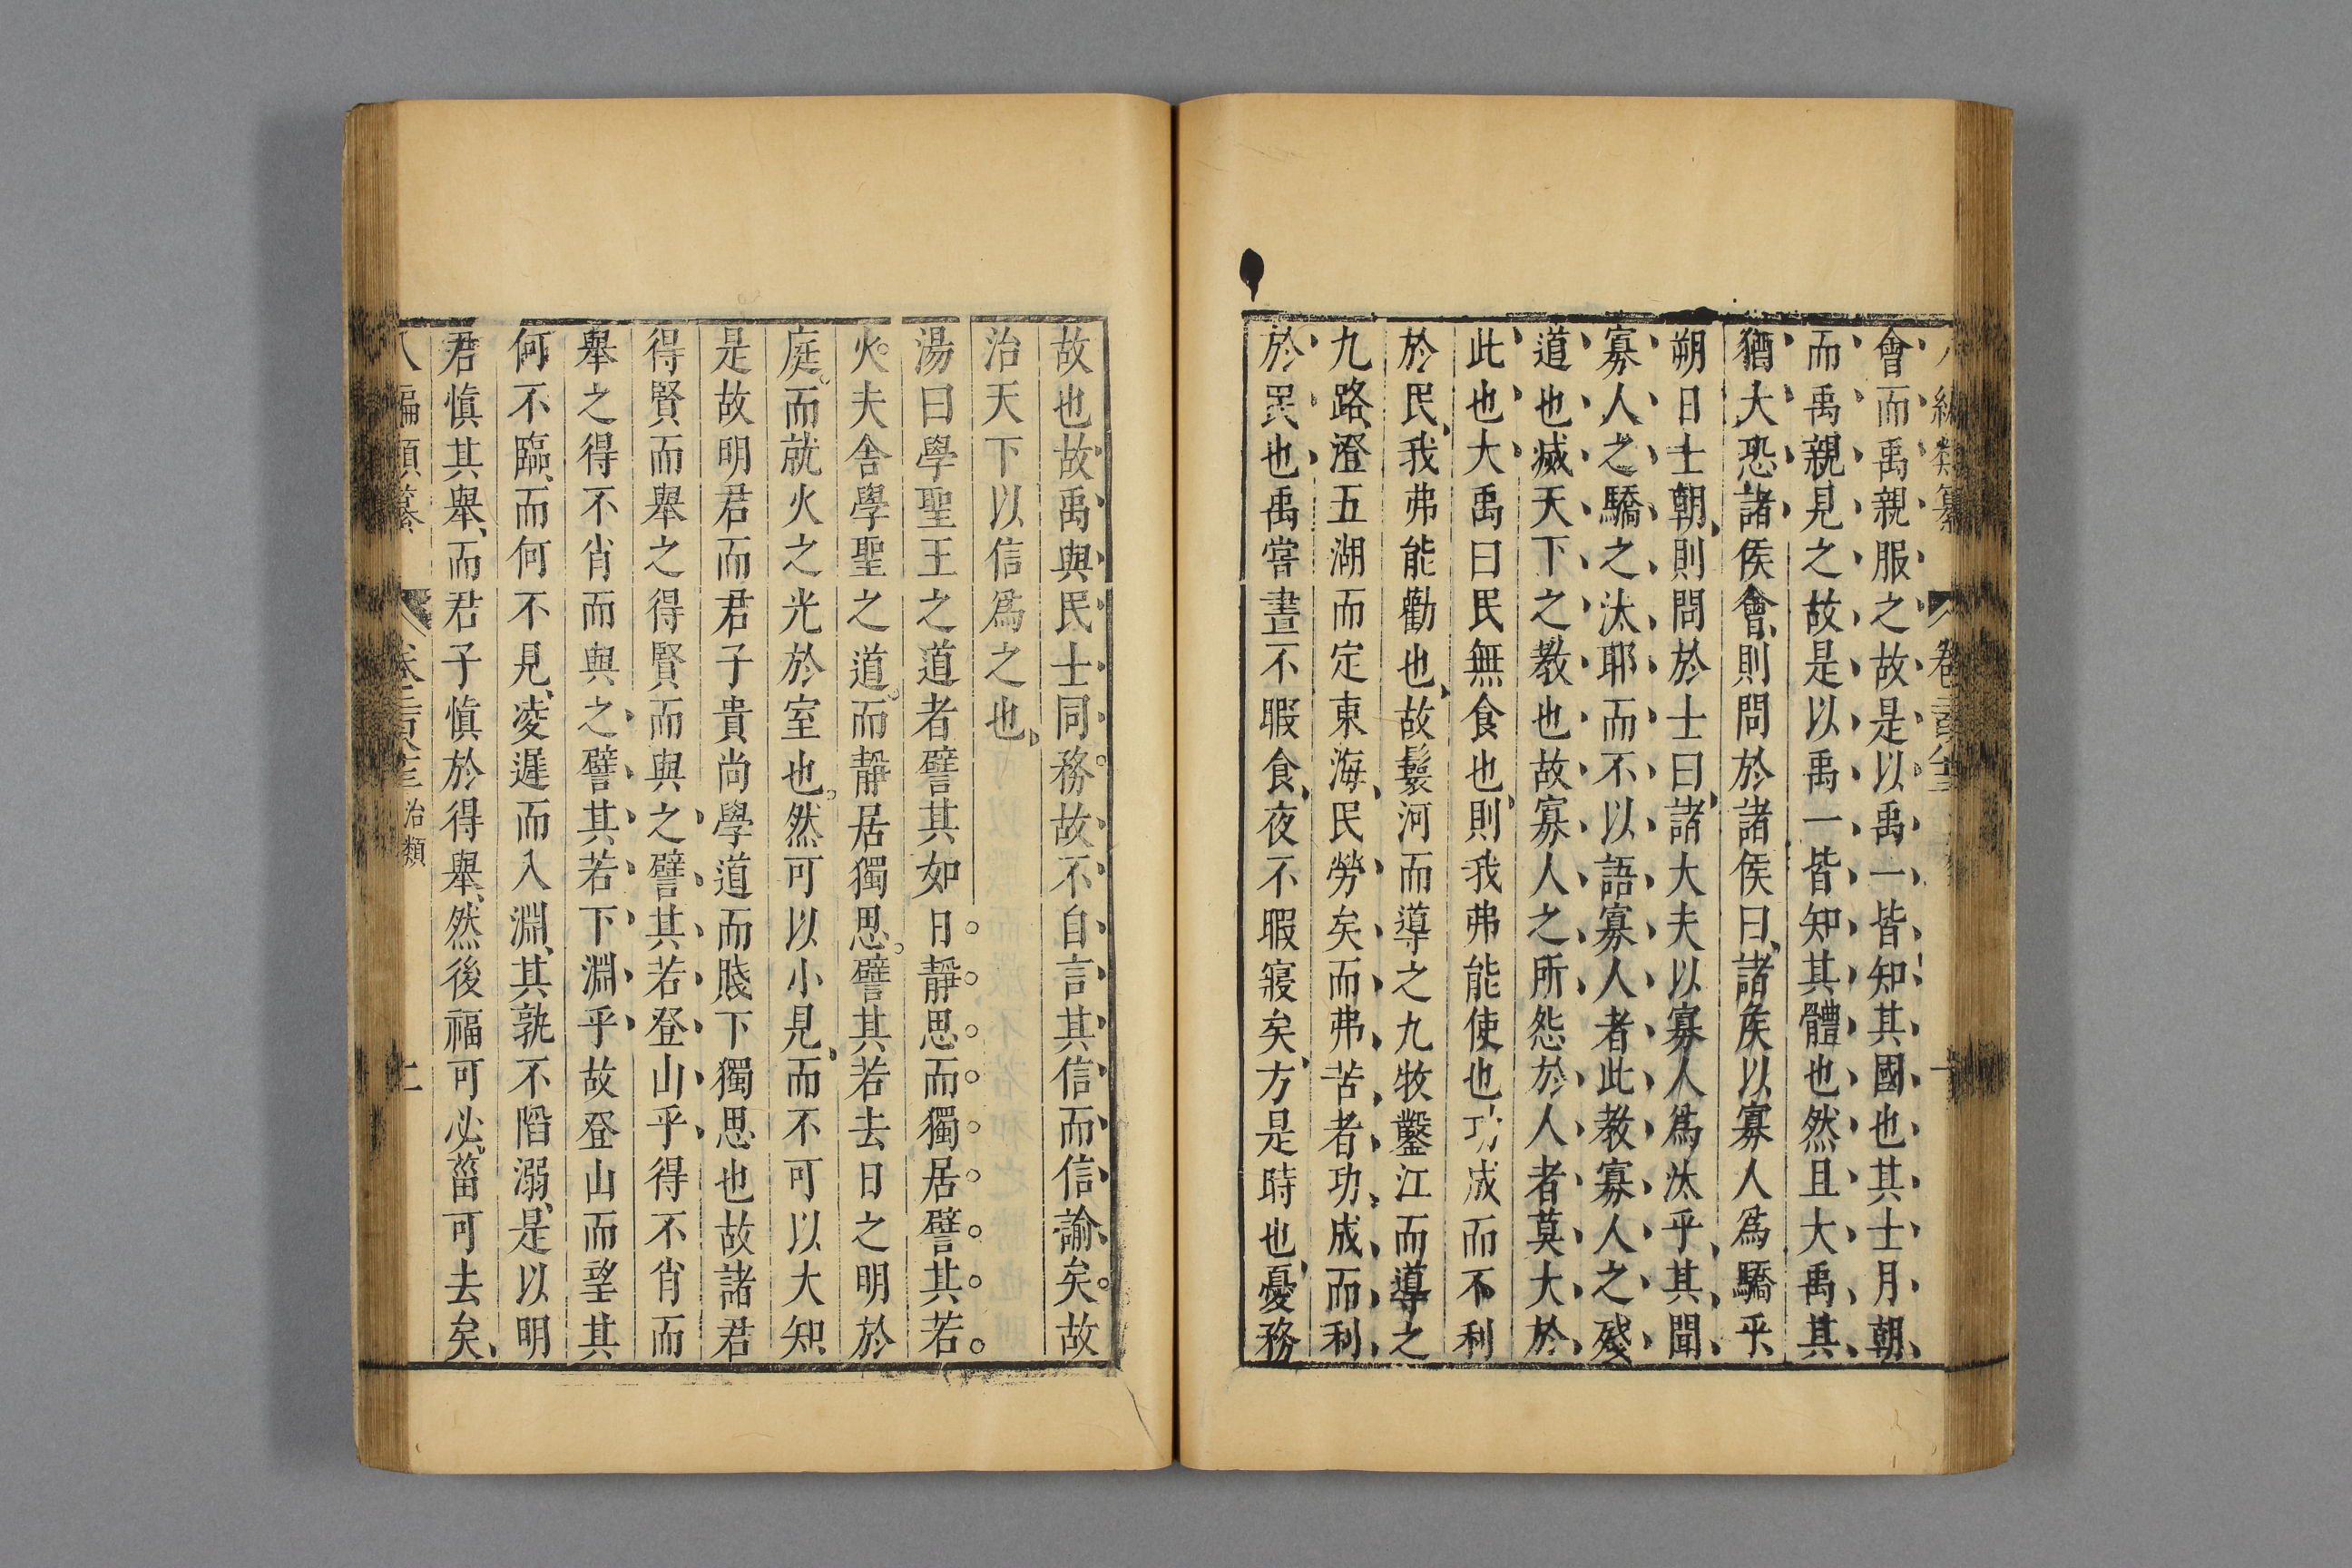 會而禹親服之故是以禹一皆知其國也其士月朝
而禹親見之故是以禹一皆知其體也然且大禹其
猶大恐諸侯會則問於諸侯曰諸侯以寡人爲驕乎
朔日士朝則問於士曰諸大夫以寡人爲汰乎其聞
寡人之驕之汰耶而不以語寡人者此教寡人之殘
道也滅天下之教也故寡人之所怨於人者莫大於
此也大禹曰民無食也則我弗能使也功成而不利
於民我弗能勸也故鬟河而導之九牧鑿江而導之
九路澄五湖而定東海民勞矣而弗苦者功成而利
於民也禹嘗晝不暇食夜不暇寢矣方是時也憂務
故也故禹與民士同務故不自言其信而信諭矣故
治天下以信爲之也
湯曰學聖王之道者譬其如日靜思而獨居譬其若
火夫舍學聖之道而靜居獨思譬其若去日之明於
庭而就火之光於室也然可以小見而不可以大知
是故明君而君子貴尚學道而賤下獨思也故諸君
得賢而舉之得賢而與之譬其若登山乎得不肖而
舉之得不肖而與之譬其若下淵乎故登山而望其
何不臨而何不見凌遲而入淵其孰不陷溺是以明
君慎其舉而君子慎於得舉然後福可必菑可去矣
治類